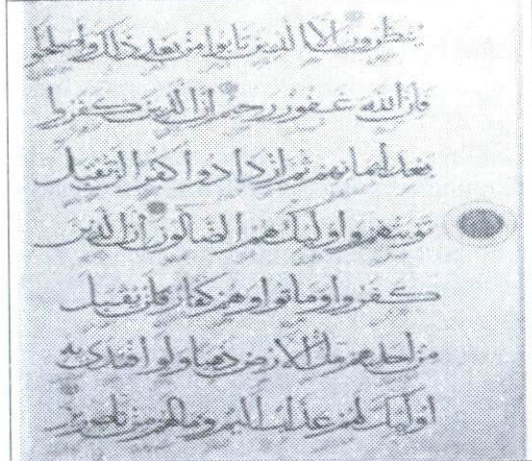 ينظرون الا الذين تابوا من بعد ذلك واصلحوا
فان الله غفور رحيم ان الذين كفروا
بعد ايمانهم ثم ازدادوا كفرا لن تقبل
توبتهم واوليك هم الضالون ان الذين
كفروا وماتوا وهم كفار فلن يقبل
من احدهم مل الارض ذهبا ولو افتدى به
اوليك لهم عذاب اليم وما لهم من ناصرين